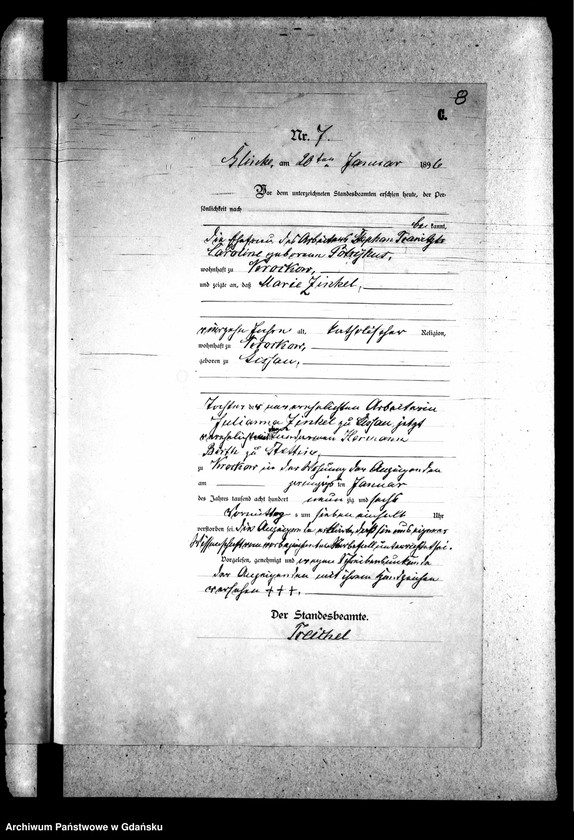 8
C.
Nr. 7.
am 20ten Januar 1896
Vor dem unterzeichneten Standesbeamten erschien heute, der Per-
sönlichkeit nach
be kannt,
die Ehefrau des Arbeiters Stephan
Caroline geborene
wohnhaft zu Krockow,
und zeigte an, daß Marie Zinkel,
vierzehn Jahre alt, katholischer Religion,
wohnhaft zu Krockow,
geboren zu Lissau,
Tochter der unverehelichten Arbeiterin
Julianna Zinkel zu Lissau jetzt
verehelichten Hermann
zu Stettin,
zu Krockow in der Wohnung der Anzeigenden
am zwanzigs ten Januar
des Jahres tausend acht hundert neun zig und sechs
Vormittags um sieben einhalb Uhr
verstorben sei. Die Anzeigende erklärte, daß sie aus eigener
Wissenschaft von vorbezeichneten Sterbefall unterrichtet sei.
Vorgelesen, genehmigt und wegen Schreibensunkunde
der Anzeigenden mit ihrem Handzeichen
versehen +++.
Der Standesbeamte.
Treichel
Archiwum Państwowe w Gdańsku